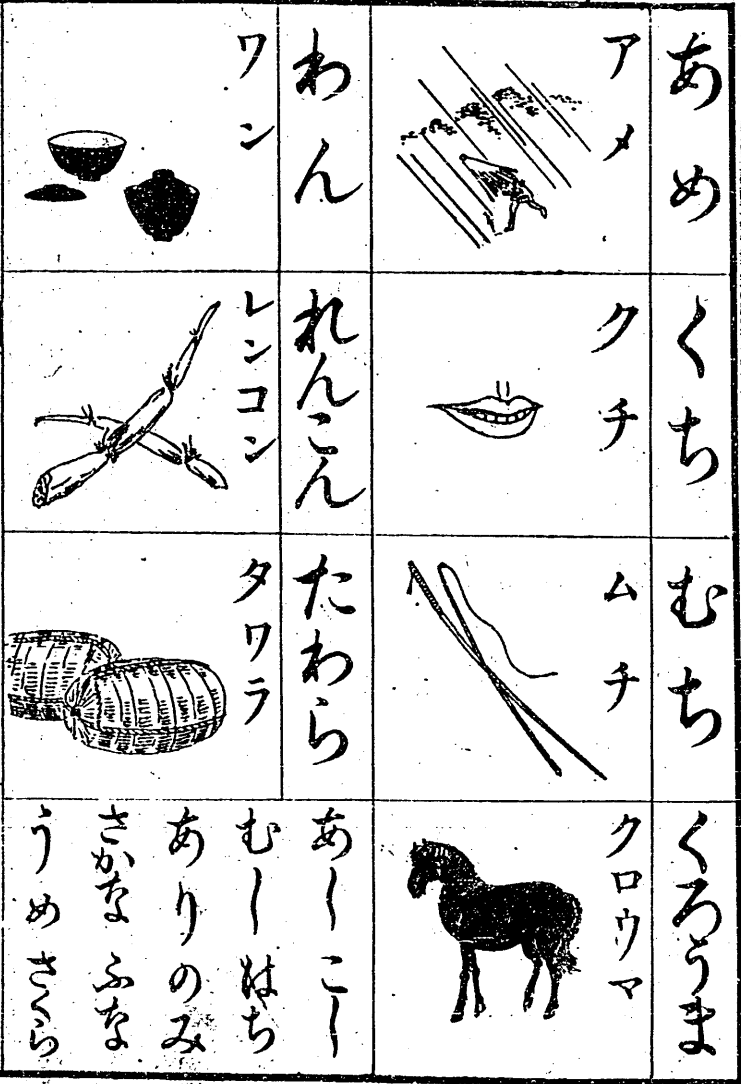 あめ
アメ
くち
クチ
むち
ムチ
くろうま
クロウマ
わん
ワン
れんこん
レンコン
たわら
タワラ
あし こし
むし はち
ありのみ
さかな ふな
うめ さくら